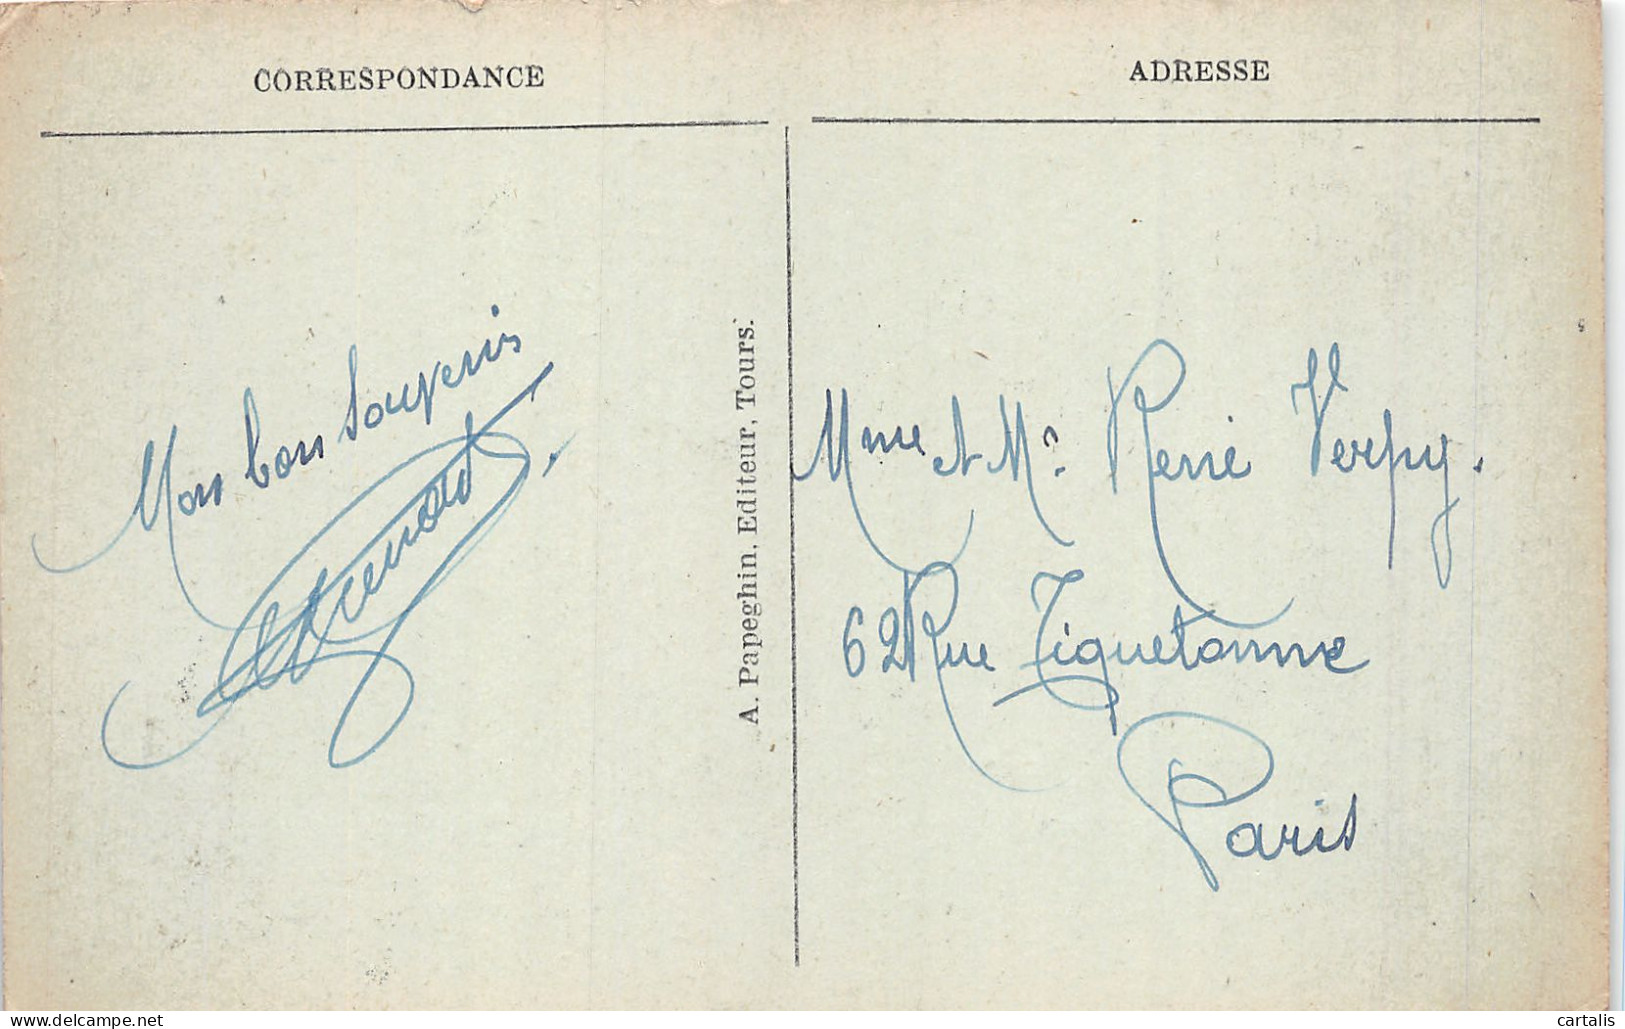 CORRESPONDANCE
Mon bon souvenir
A. Papeghin, Editeur, Tours.
ADRESSE
Mme et Mr. René Verpy.
62 Rue Tiquetonne
Paris
delcampe.net
cartalis